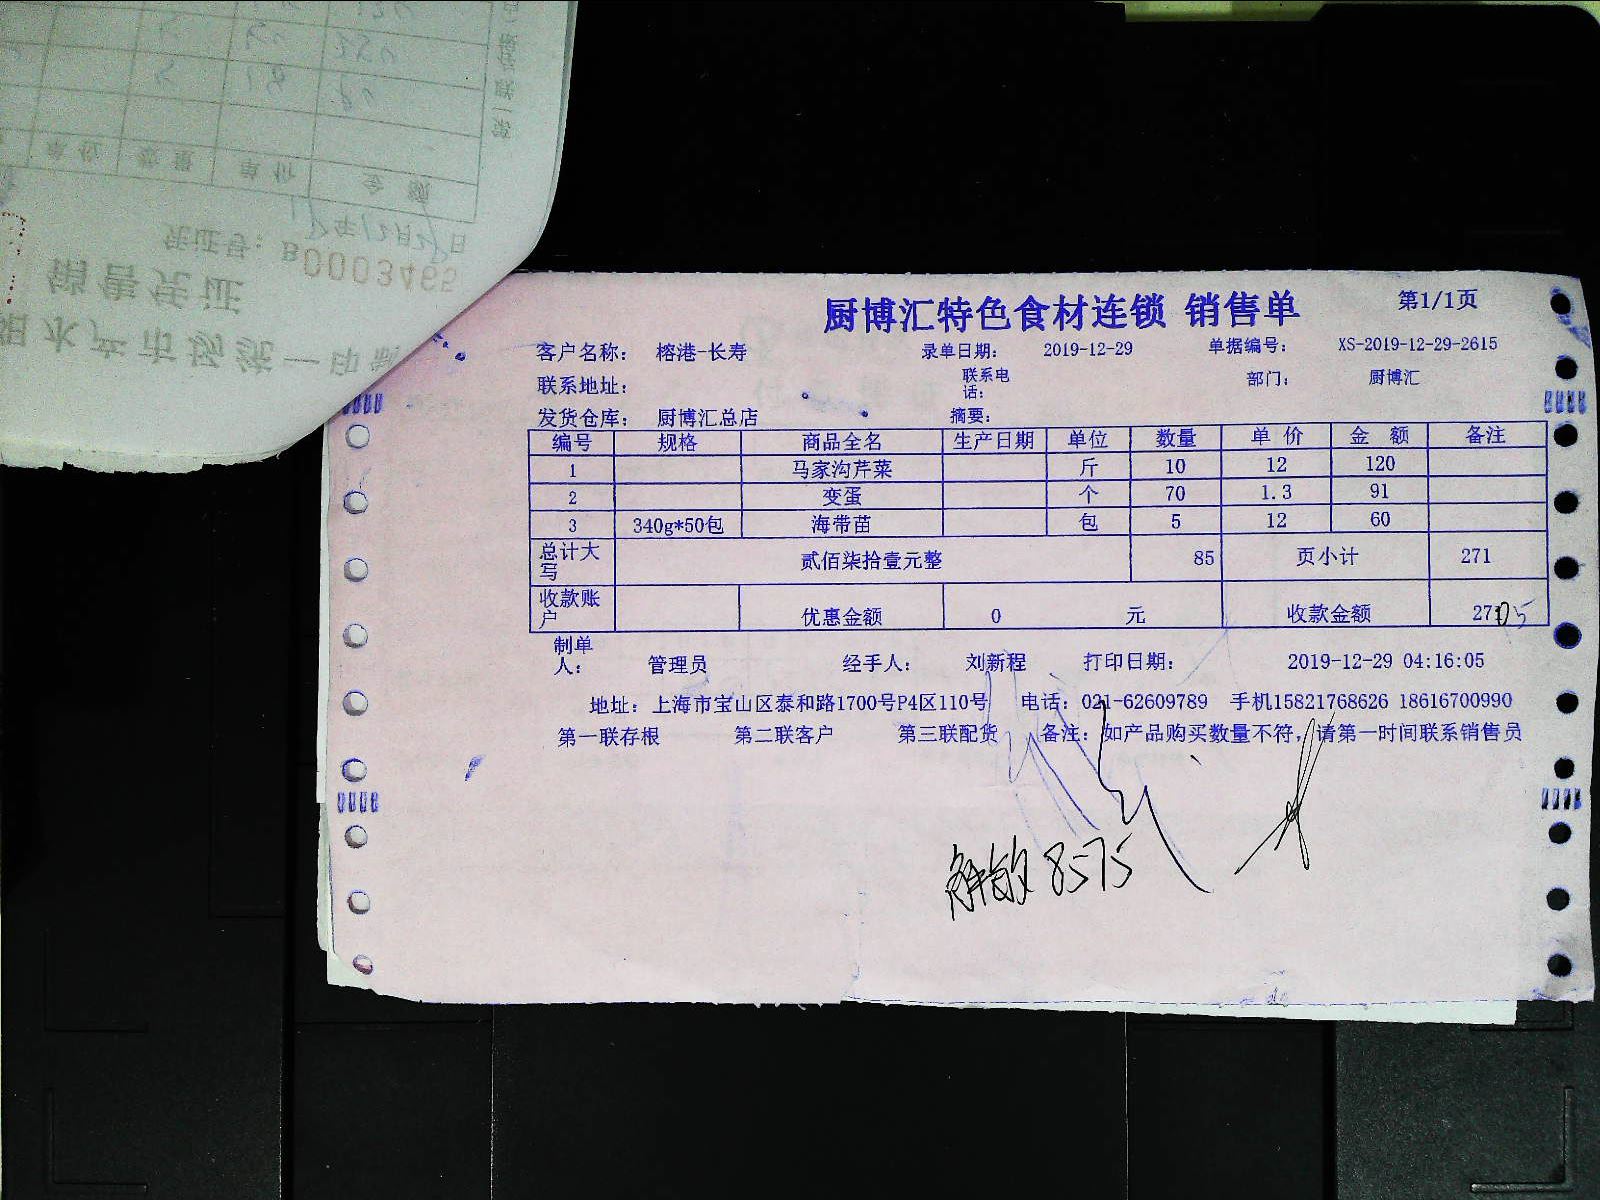 厨博汇特色食材连锁 销售单 第1/1页
客户名称： 榕港-长寿 录单日期： 2019-12-29 单据编号： XS-2019-12-29-2615
联系地址： 联系电话： 部门： 厨博汇
发货仓库： 厨博汇总店 摘要：
编号 规格 商品全名 生产日期 单位 数量 单 价 金 额 备注
1 马家沟芹菜 斤 10 12 120
2 变蛋 个 70 1.3 91
3 340g*50包 海带苗 包 5 12 60
总计大写 贰佰柒拾壹元整 85 页小计 271
收款账户 优惠金额 0 元 收款金额
制单人： 管理员 经手人： 刘新程 打印日期： 2019-12-29 04:16:05
地址：上海市宝山区泰和路1700号P4区110号 电话：021-62609789 手机15821768626 18616700990
第一联存根 第二联客户 第三联配货 备注：如产品购买数量不符，请第一时间联系销售员
8575
金 额 单 价 数 量 单 位
凭证号：B0003465
销售凭证
水产市场统一印制